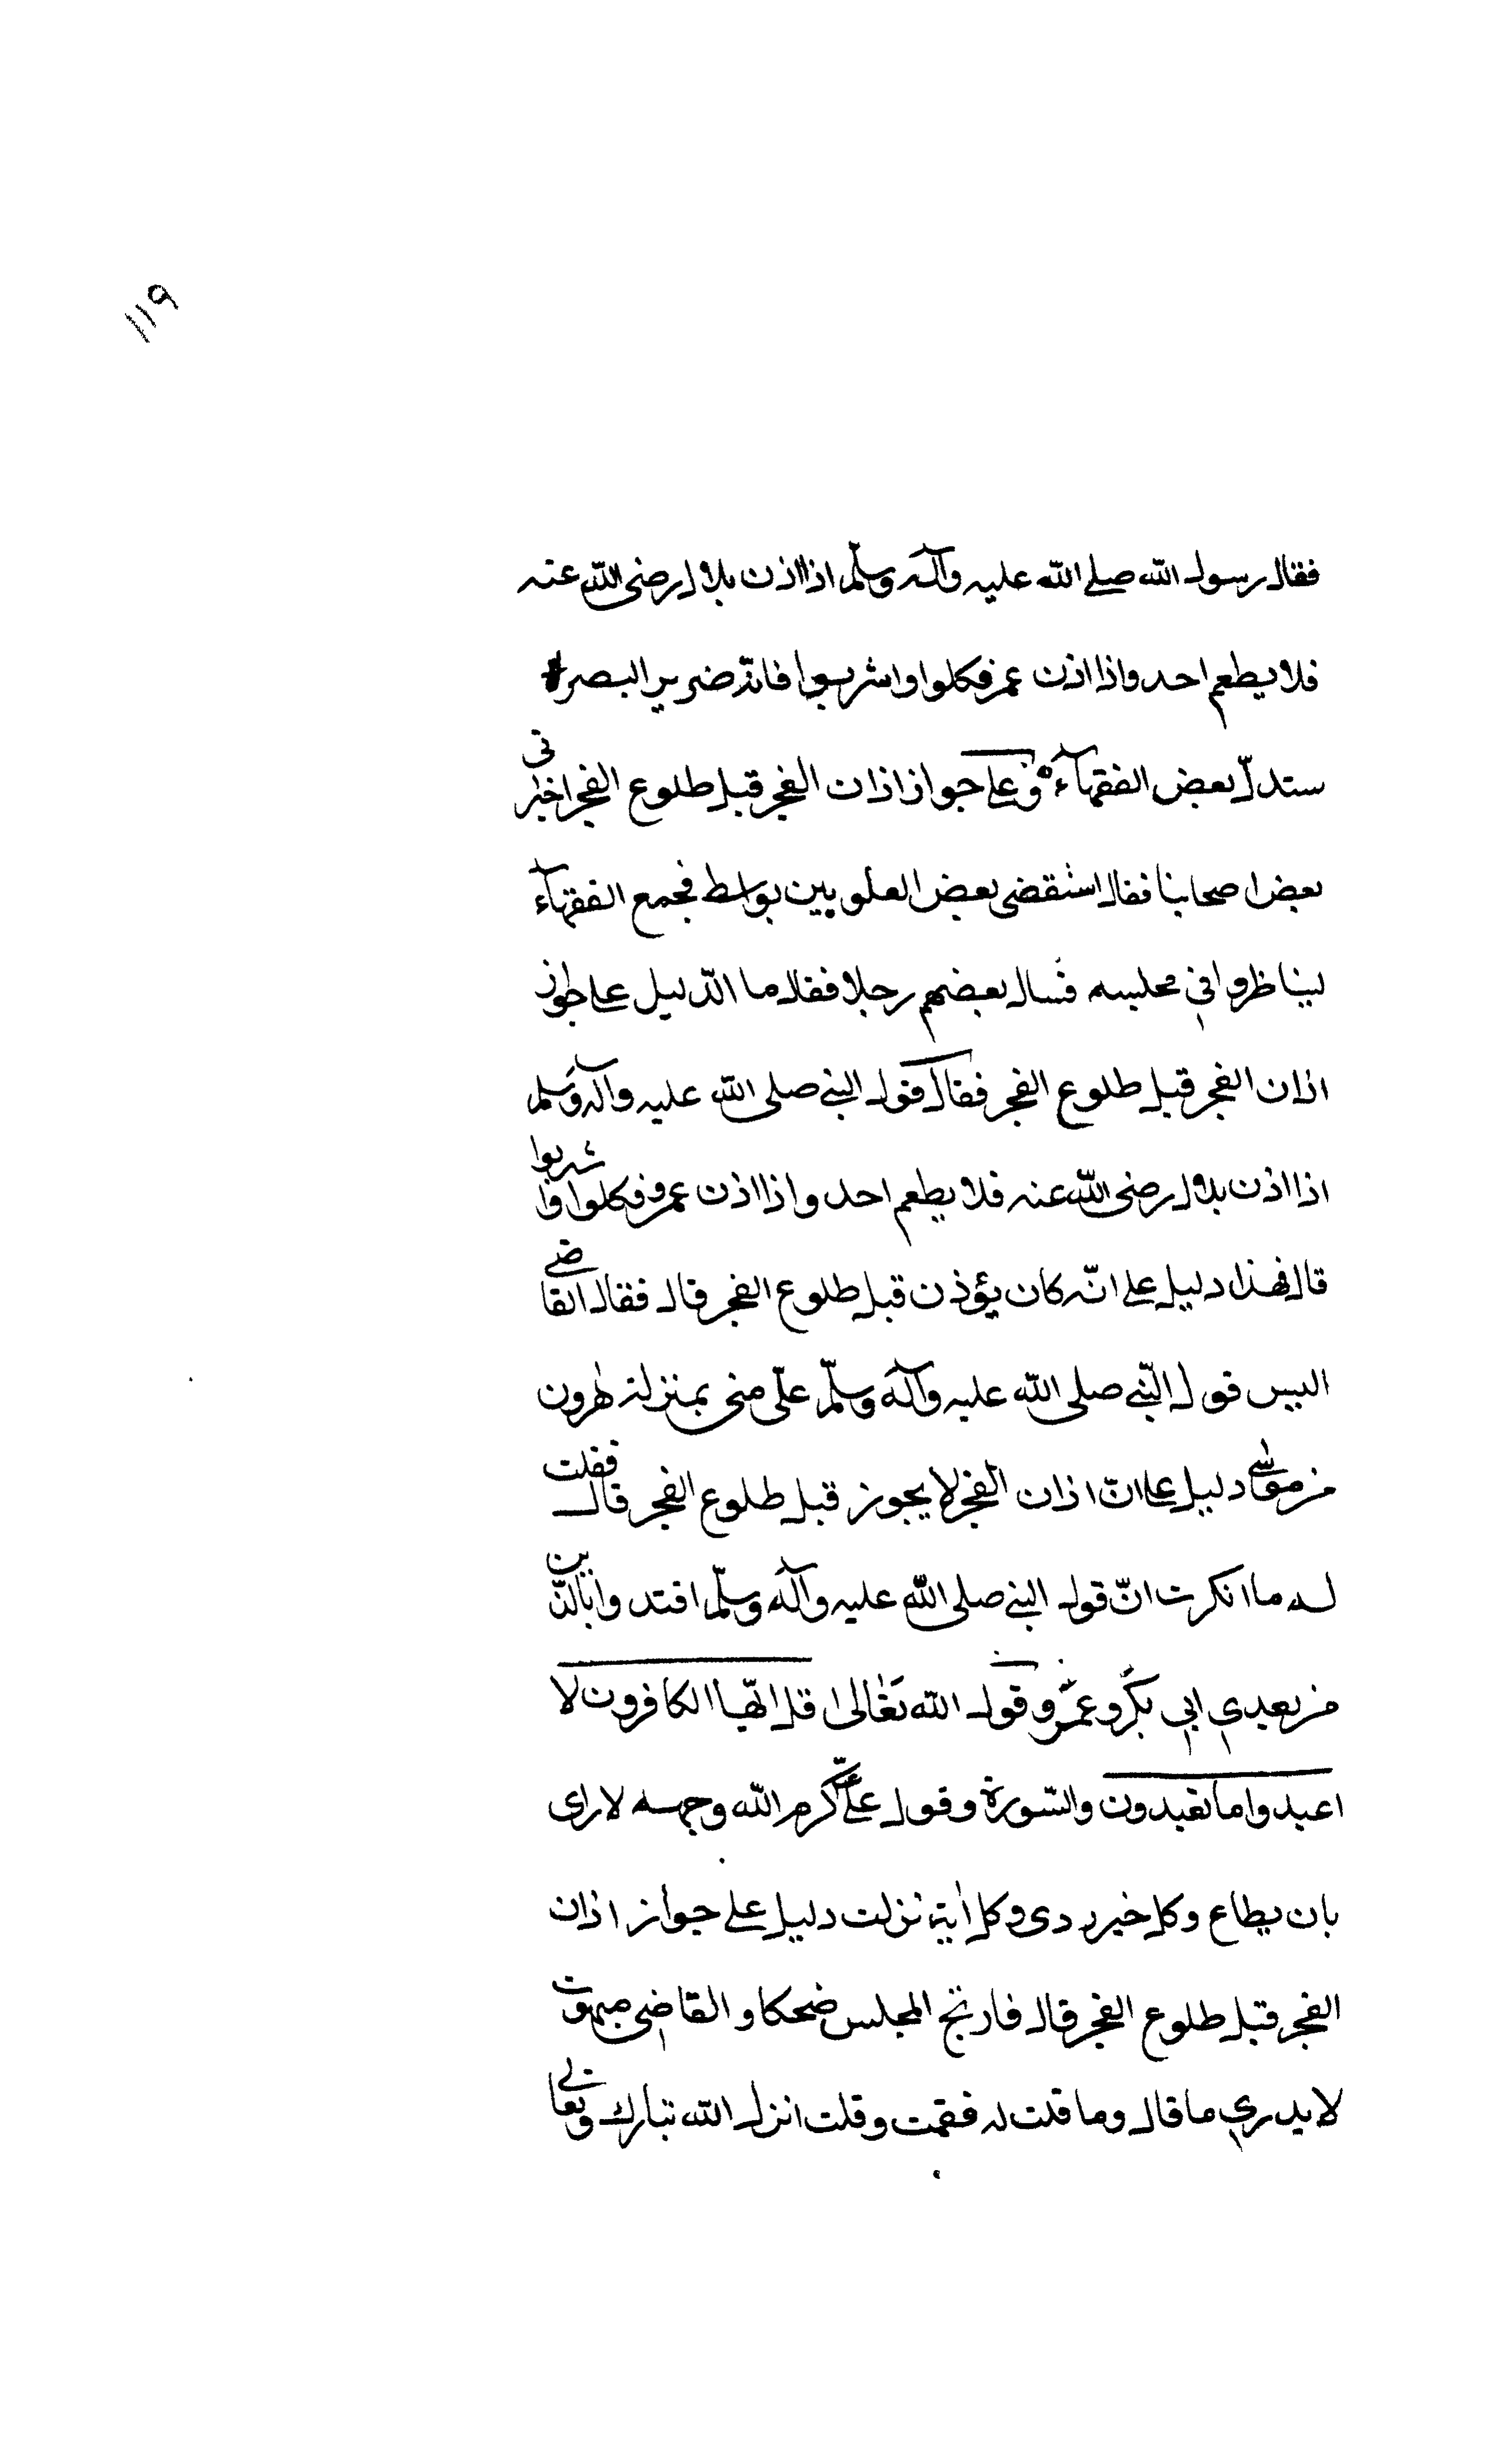 ١١٩
فقال رسول الله صلے الله عليه وآله وسلّم اذا اذن بلال رضى الله عنه
فلا يطعم احد واذا اذن عمرو فكلوا واشربوا فانّه ضرير البصر
ستدلّ بعض الفقهآء علے جواز اذان الفجر قبل طلوع الفجر اخبرنى
بعض اصحابنا فقال استقضى بعض العلويين بواسط فجمع الفقهآء
ليناظروا في مجلسه فسال بعضهم رجلا فقال ما الدّليل علے جواز
اذان الفجر قبل طلوع الفجر فقال قول النبي صلى الله عليه وآله وسلم
اذا اذن بلال رضى الله عنه فلا يطعم احد واذا اذن عمرو فكلوا واشربوا
قال فهذا دليل علے انّه كان يؤذن قبل طلوع الفجر قال فقال القاضے
اليس قول النّبي صلى الله عليه وآله وسلّم علّى منى بمنزلة هٰرون
من موسٰى دليل علے انّ اذان الفجر لا يجوز قبل طلوع الفجر قال فقلت
له ما انكرت انّ قول النبي صلى الله عليه وآله وسلّم اقتدوا بالذّين
من بعدي ابي بكر وعمر وقول الله تعٰالىٰ قل يا ايّها الكافرون لا
اعبد ما تعبدون والسّورة وقول علىّ كرم الله وجهه لا راى
بان يطاع وكل خبر روى وكل اٰية نزلت دليل علے جواز اذان
الفجر قبل طلوع الفجر قال فارتج المجلس ضحكا و القاضي مبهوت
لا يدري ما قال وما قلت له فقمت وقلت انزل الله تبارك وتعالے